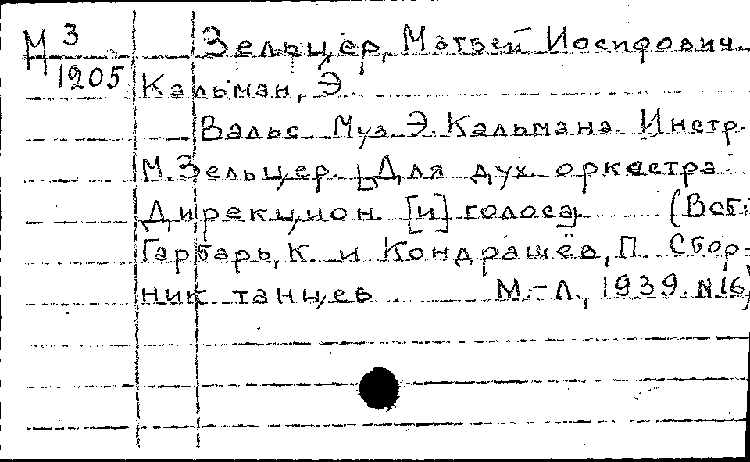 М 3 Зельцер, Матвей Иосифович
1205 Кальман, Э.
Вальс. Муз. Э. Кальмана. Инстр.
М. Зельцер. [Для дух. оркестра
Дирекцион [и] голоса] (В сб.:
Гарбарь, К. и Кондрашёв, П. Сбор-
ник танцев М.-Л., 1939. №16)